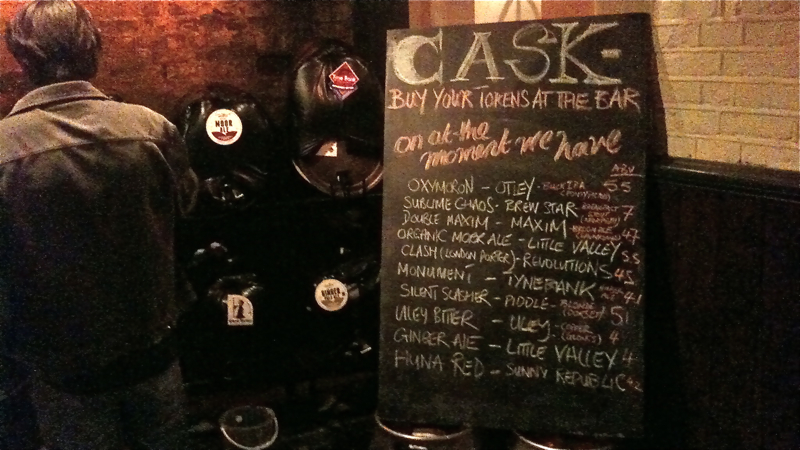 CASK-
BUY YOUR TOKENS AT THE BAR
on at the
moment we have
ABV
OXYMORON - OTLEY - BLACK IPA 5.5
SUBLIME CHAOS - BREW STAR 7
DOUBLE MAXIM - MAXIM - BROWN ALE 4.7
ORGANIC MOOR ALE - LITTLE VALLEY 5.5
CLASH (LONDON PORTER) - REVOLUTIONS 4.5
MONUMENT - TYNEBANK 4.1
SILENT SLASHER - PIDDLE - BLONDE (DORSET) 5.1
ULEY BITTER - ULEY - COPPER 4
GINGER ALE - LITTLE VALLEY 4
HUNA RED - SUNNY REPUBLIC 4.2
MOOR
ALE
GINGER